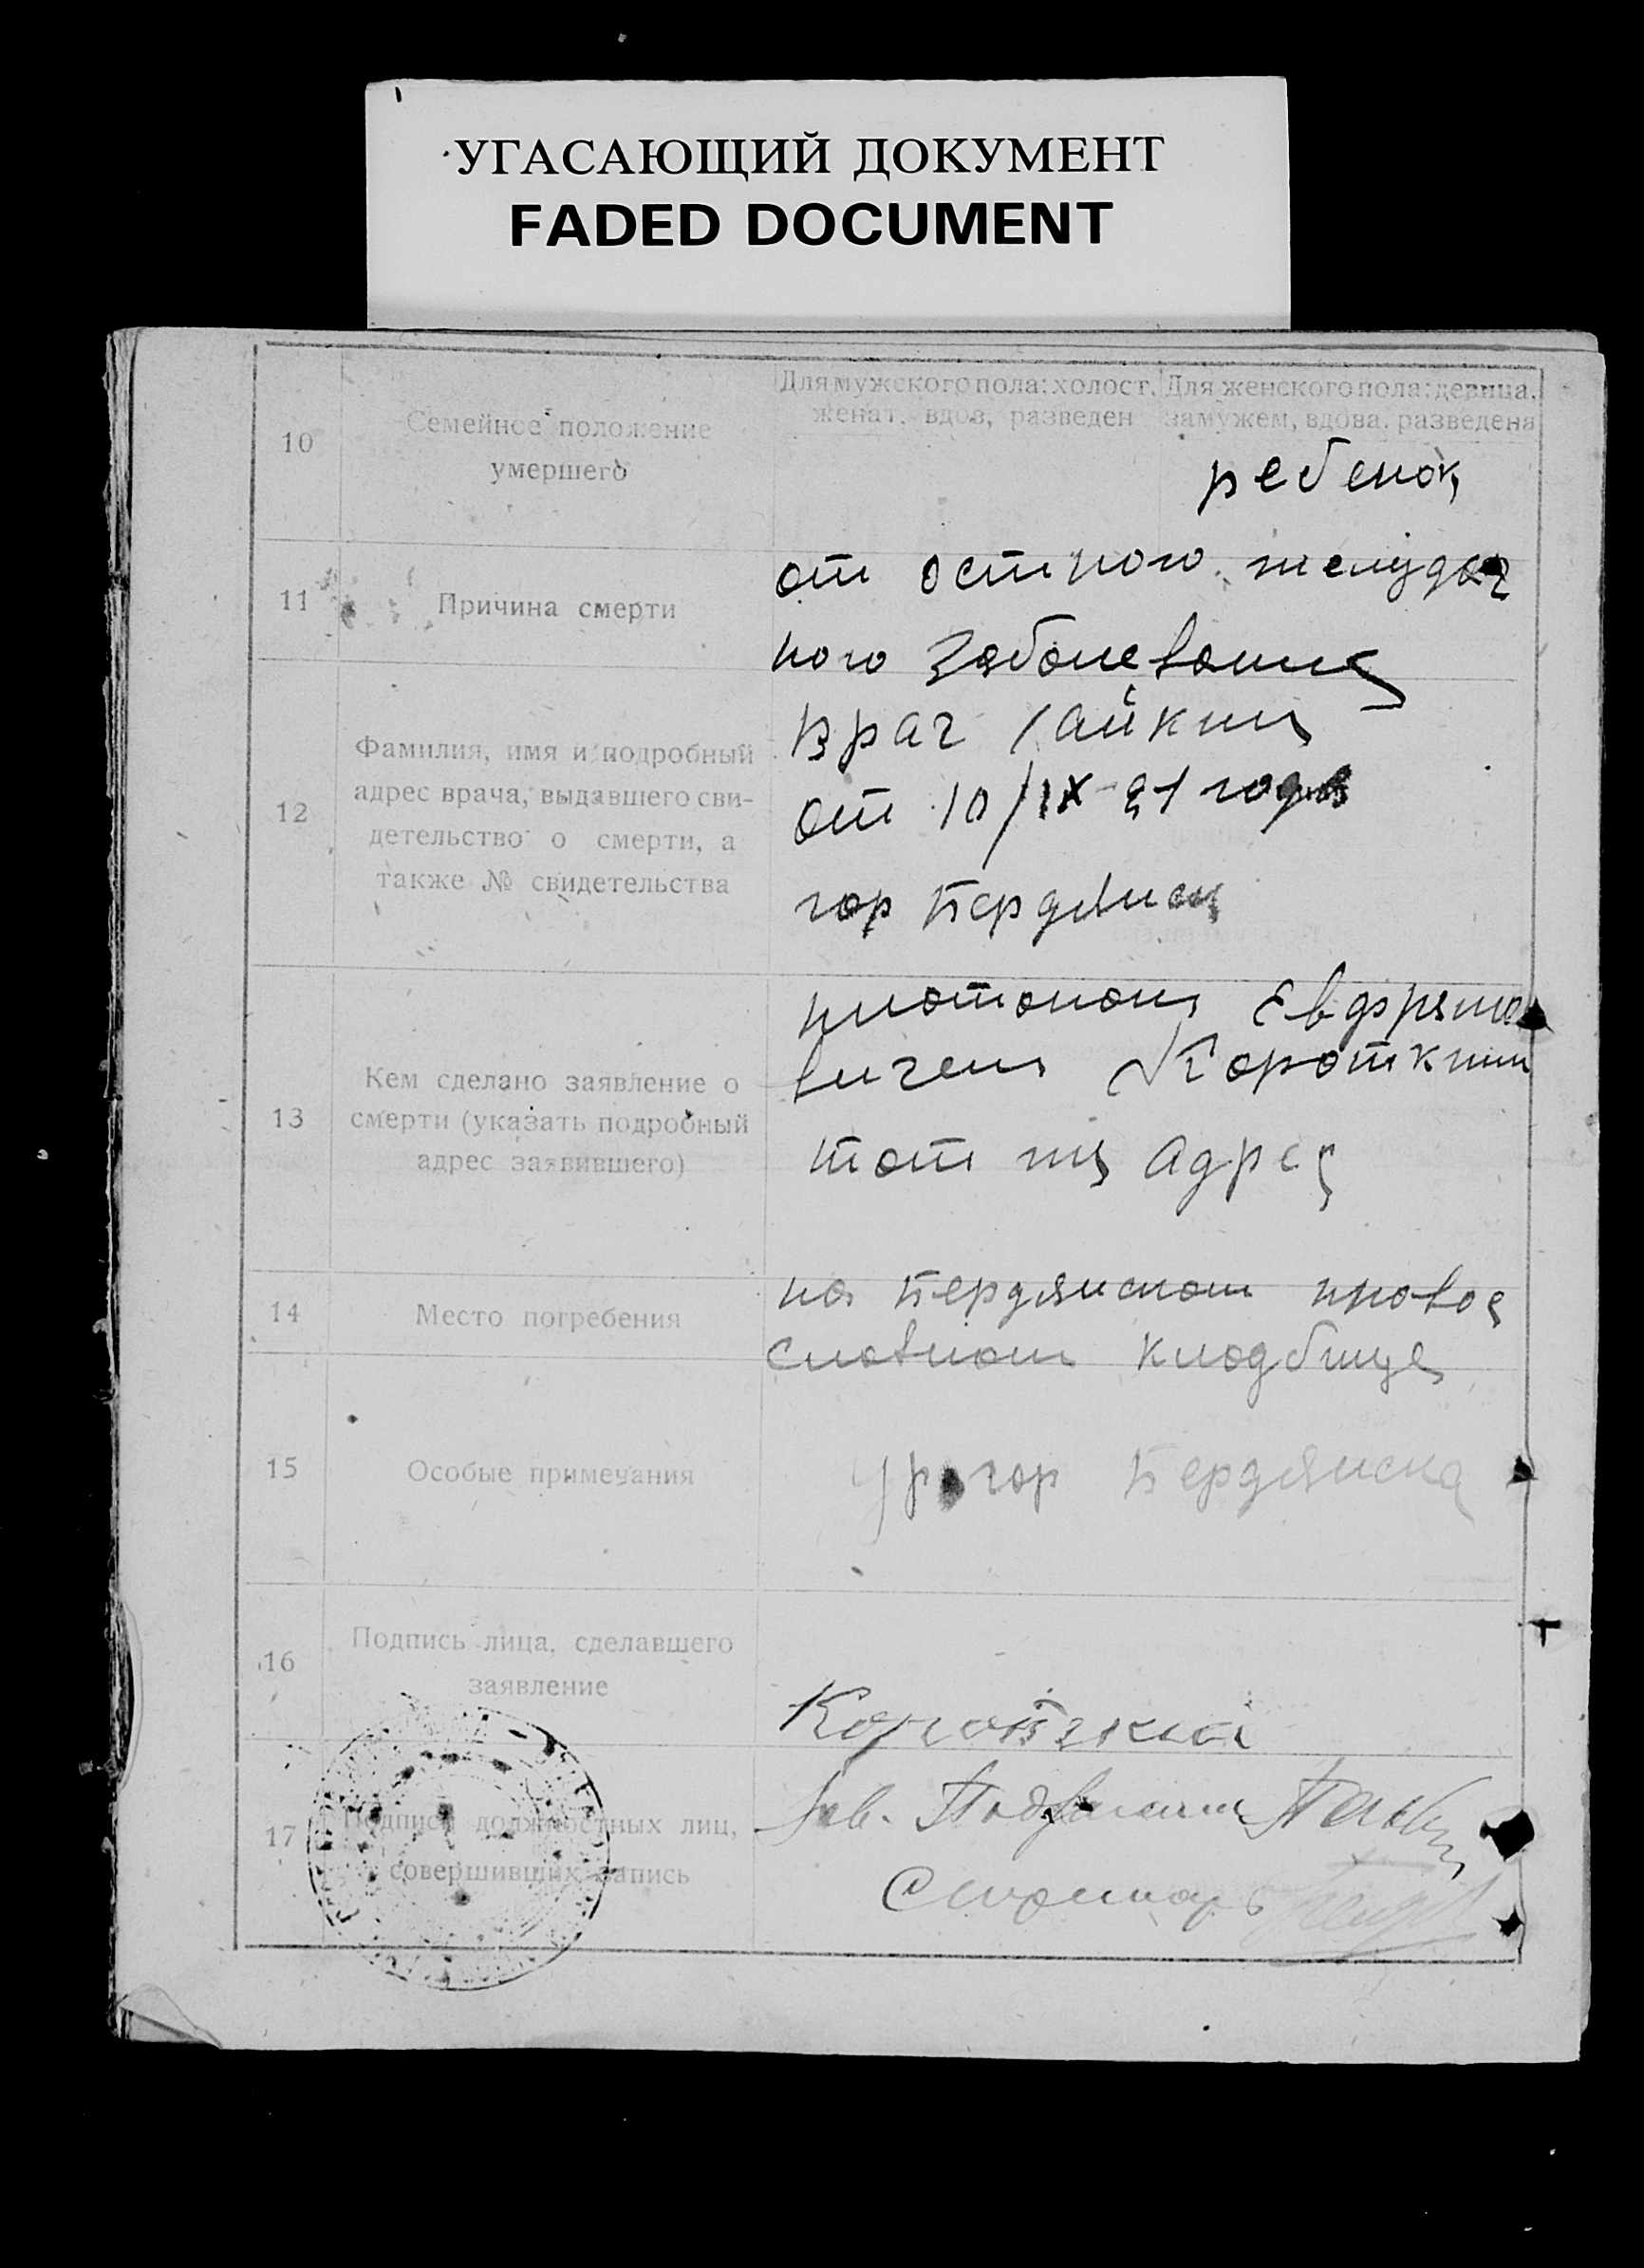 УГАСАЮЩИЙ ДОКУМЕНТ
FADED DOCUMENT
10
Семейное положение
умершего
Для мужского пола: холост,
женат, вдов, разведен
Для женского пола: девица,
замужем, вдова, разведена
ребенок
11
Причина смерти
от острого желудоч
ного заболевания
12
Фамилия, имя и подробный
адрес врача, выдавшего сви-
детельство о смерти, а
также № свидетельства
врач
от 10/IX-21 года
гор Бердянск
13
Кем сделано заявление о
смерти (указать подробный
адрес заявившего)
вичем Коротким
тот же адрес
14
Место погребения
на Бердянском право
славном кладбище
15
Особые примечания
гор Бердянска
16
Подпись лица, сделавшего
заявление
Короткий
17
Подписи должностных лиц,
совершивших запись
Зав.